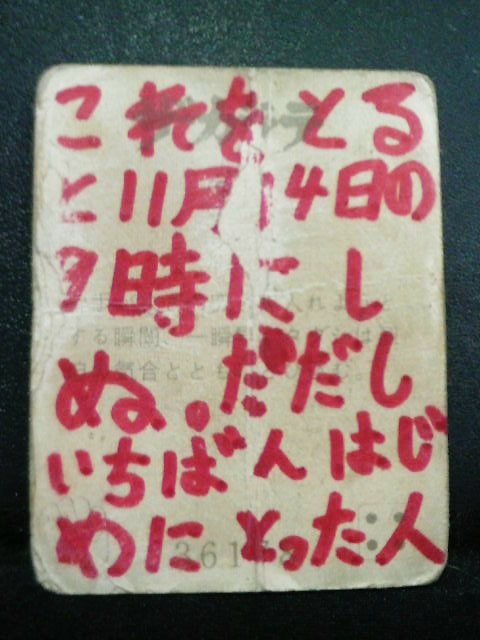 これをとる
と11月14日の
7時にし
ぬ。ただし
いちばんはじ
めにとった人
する瞬間、一瞬
気合ととも
361